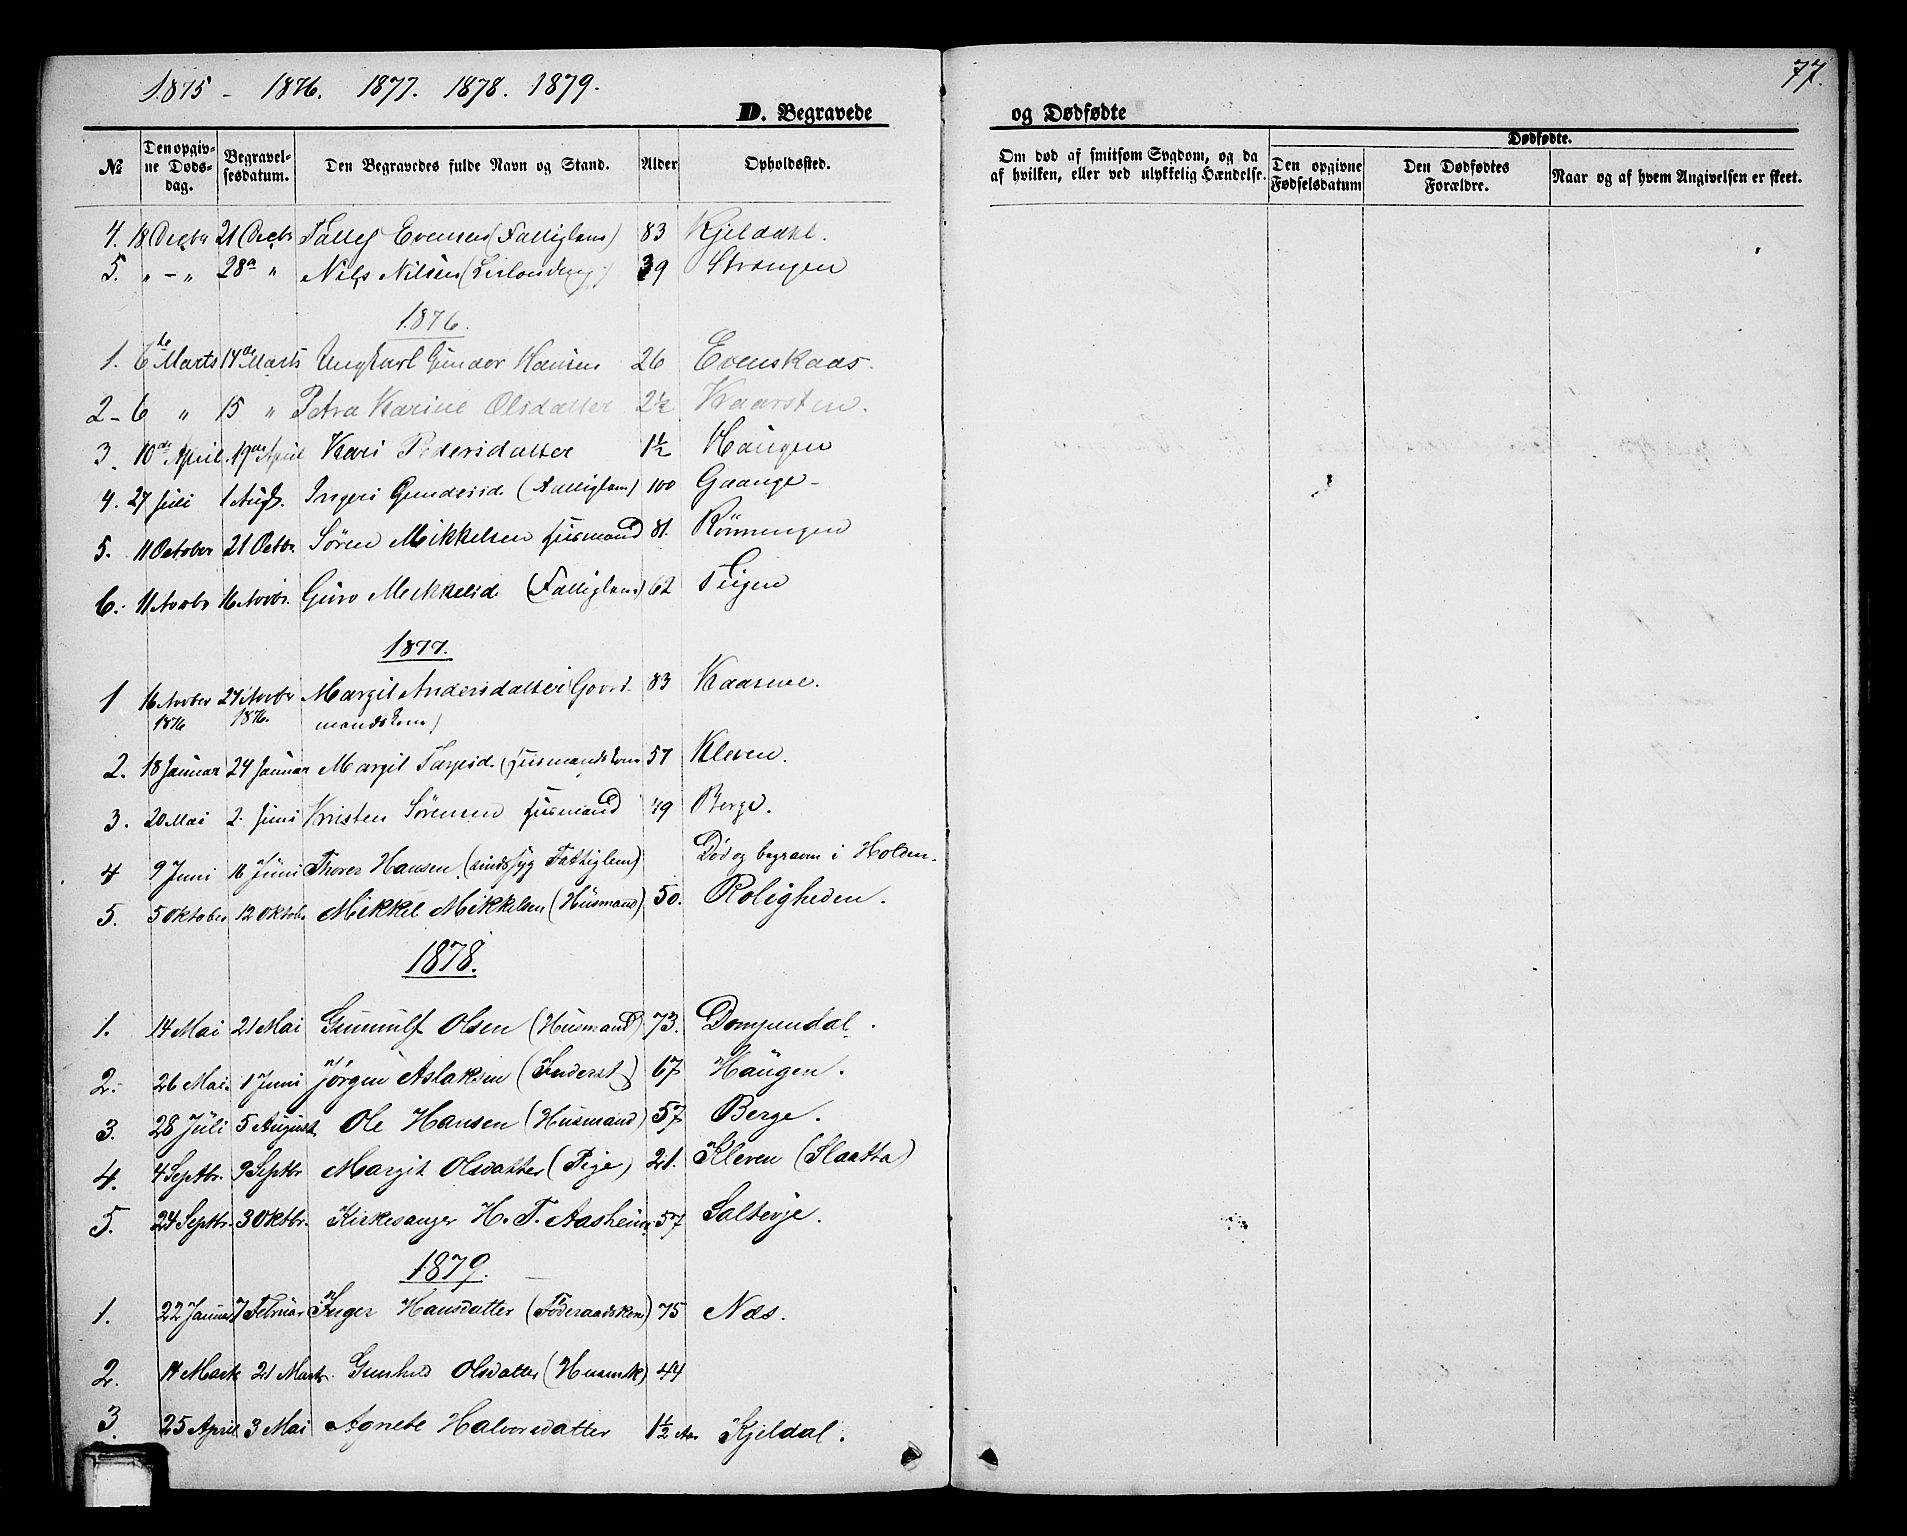 1875 - 1876. 1877. 1878. 1879.
77.
D. Begravede og Dødfødte
Dødfødte.
№ Den opgivne Døds-dag. Begravelsesdatum. Den Begravedes fulde Navn og Stand. Alder Opholdssted. Om død af smitsom Sygdom, og da af hvilken, eller ved ulykkelig Hændelse. Den opgivne Fødselsdatum Den Dødfødtes Forældre. Naar og af hvem Angivelsen er skeet.
4. 18 Decbr 21 Decbr Tallef Evensen (Fattiglem) 83 Kjeldahl.
5. " - " 28de " Nils Nilsen 39 Strangen
1876.
1. 6te Marts 14de Marts Ungkarl Gunder Hansen 26 Evenskaas.
2 - 6 " 15 " Petra Karine Olsdatter 2½ Kaarsten.
3. 10de April 19de April Kari Pedersdatter 1½ Haugen
4. 27 Juli 1 Aug. Ingeri Gundersd (Fattiglem) 100 Gaange -
5. 11 October 21 Octbr. Sören Mikkelsen Husmand 81. Rönningen
6. 11 Novbr 16 Novbr. Guro Mekkelsd (Fattiglem) 62 Teigen
1877.
1 16 Novber 1876 27 Novbr 1876. Margit Andersdatter (Gaard-
mandskone)
83 Kaasene.
2. 18 Januar 24 Januar Margit Tarjesd. (Husmandskone 57 Kleven.
3. 20 Mai 2. Juni Kristen Sörensen Husmand 49 Berge.
4 9 Juni 16 Juni Thorer Hansen. (sindssyg Fattiglem) Död og begraven i Holden.
5. 5 Oktober 12 Oktobr Mikkel Mikkelsen (Husmand) 50. Roligheden.
1878.
1. 14 Mai 21 Mai Gunnulf Olsen (Husmand) 73. Domjendal.
2. 26 Mai. 1 Juni Jørgen Aslaksen (Inderst) 67 Haugen.
3. 28 Juli 5 August Ole Hansen (Husmand) 57 Berge.
4. 4 Septbr. 9 Septbr Margit Olsdatter (Pige) 21. Kleven (Slaatta)
5. 24 Septbr. 3 Oktbr. Kirkesanger H. T. Aasheim. 57 Saltevje.
1879.
1. 22 Januar 7 Februar Inger Hansdatter (Föderaadskone) 75 Næs.
2. 14 Marts 21 Marts. Gunhild Olsdatter (Husmk) 44
3. 25 April 3 Mai Agnete Halvorsdatter 1½ Aar Kjeldal.